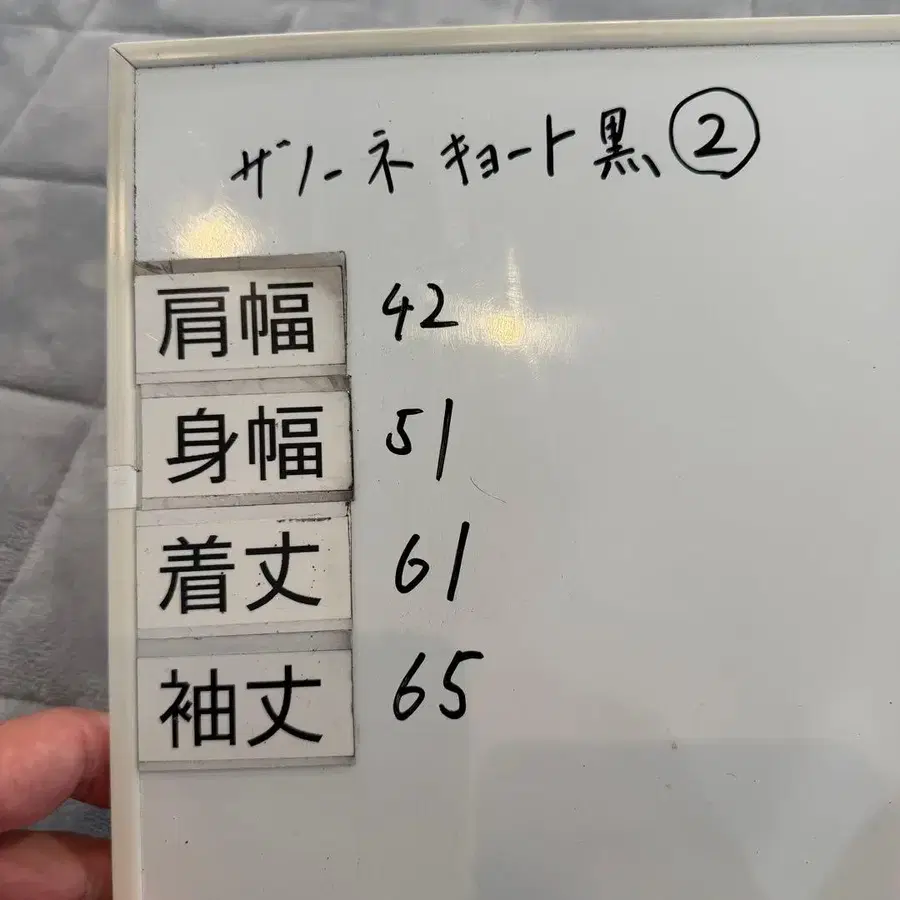 ザノーネ キョート 黒 ②
肩幅 42
身幅 51
着丈 61
袖丈 65